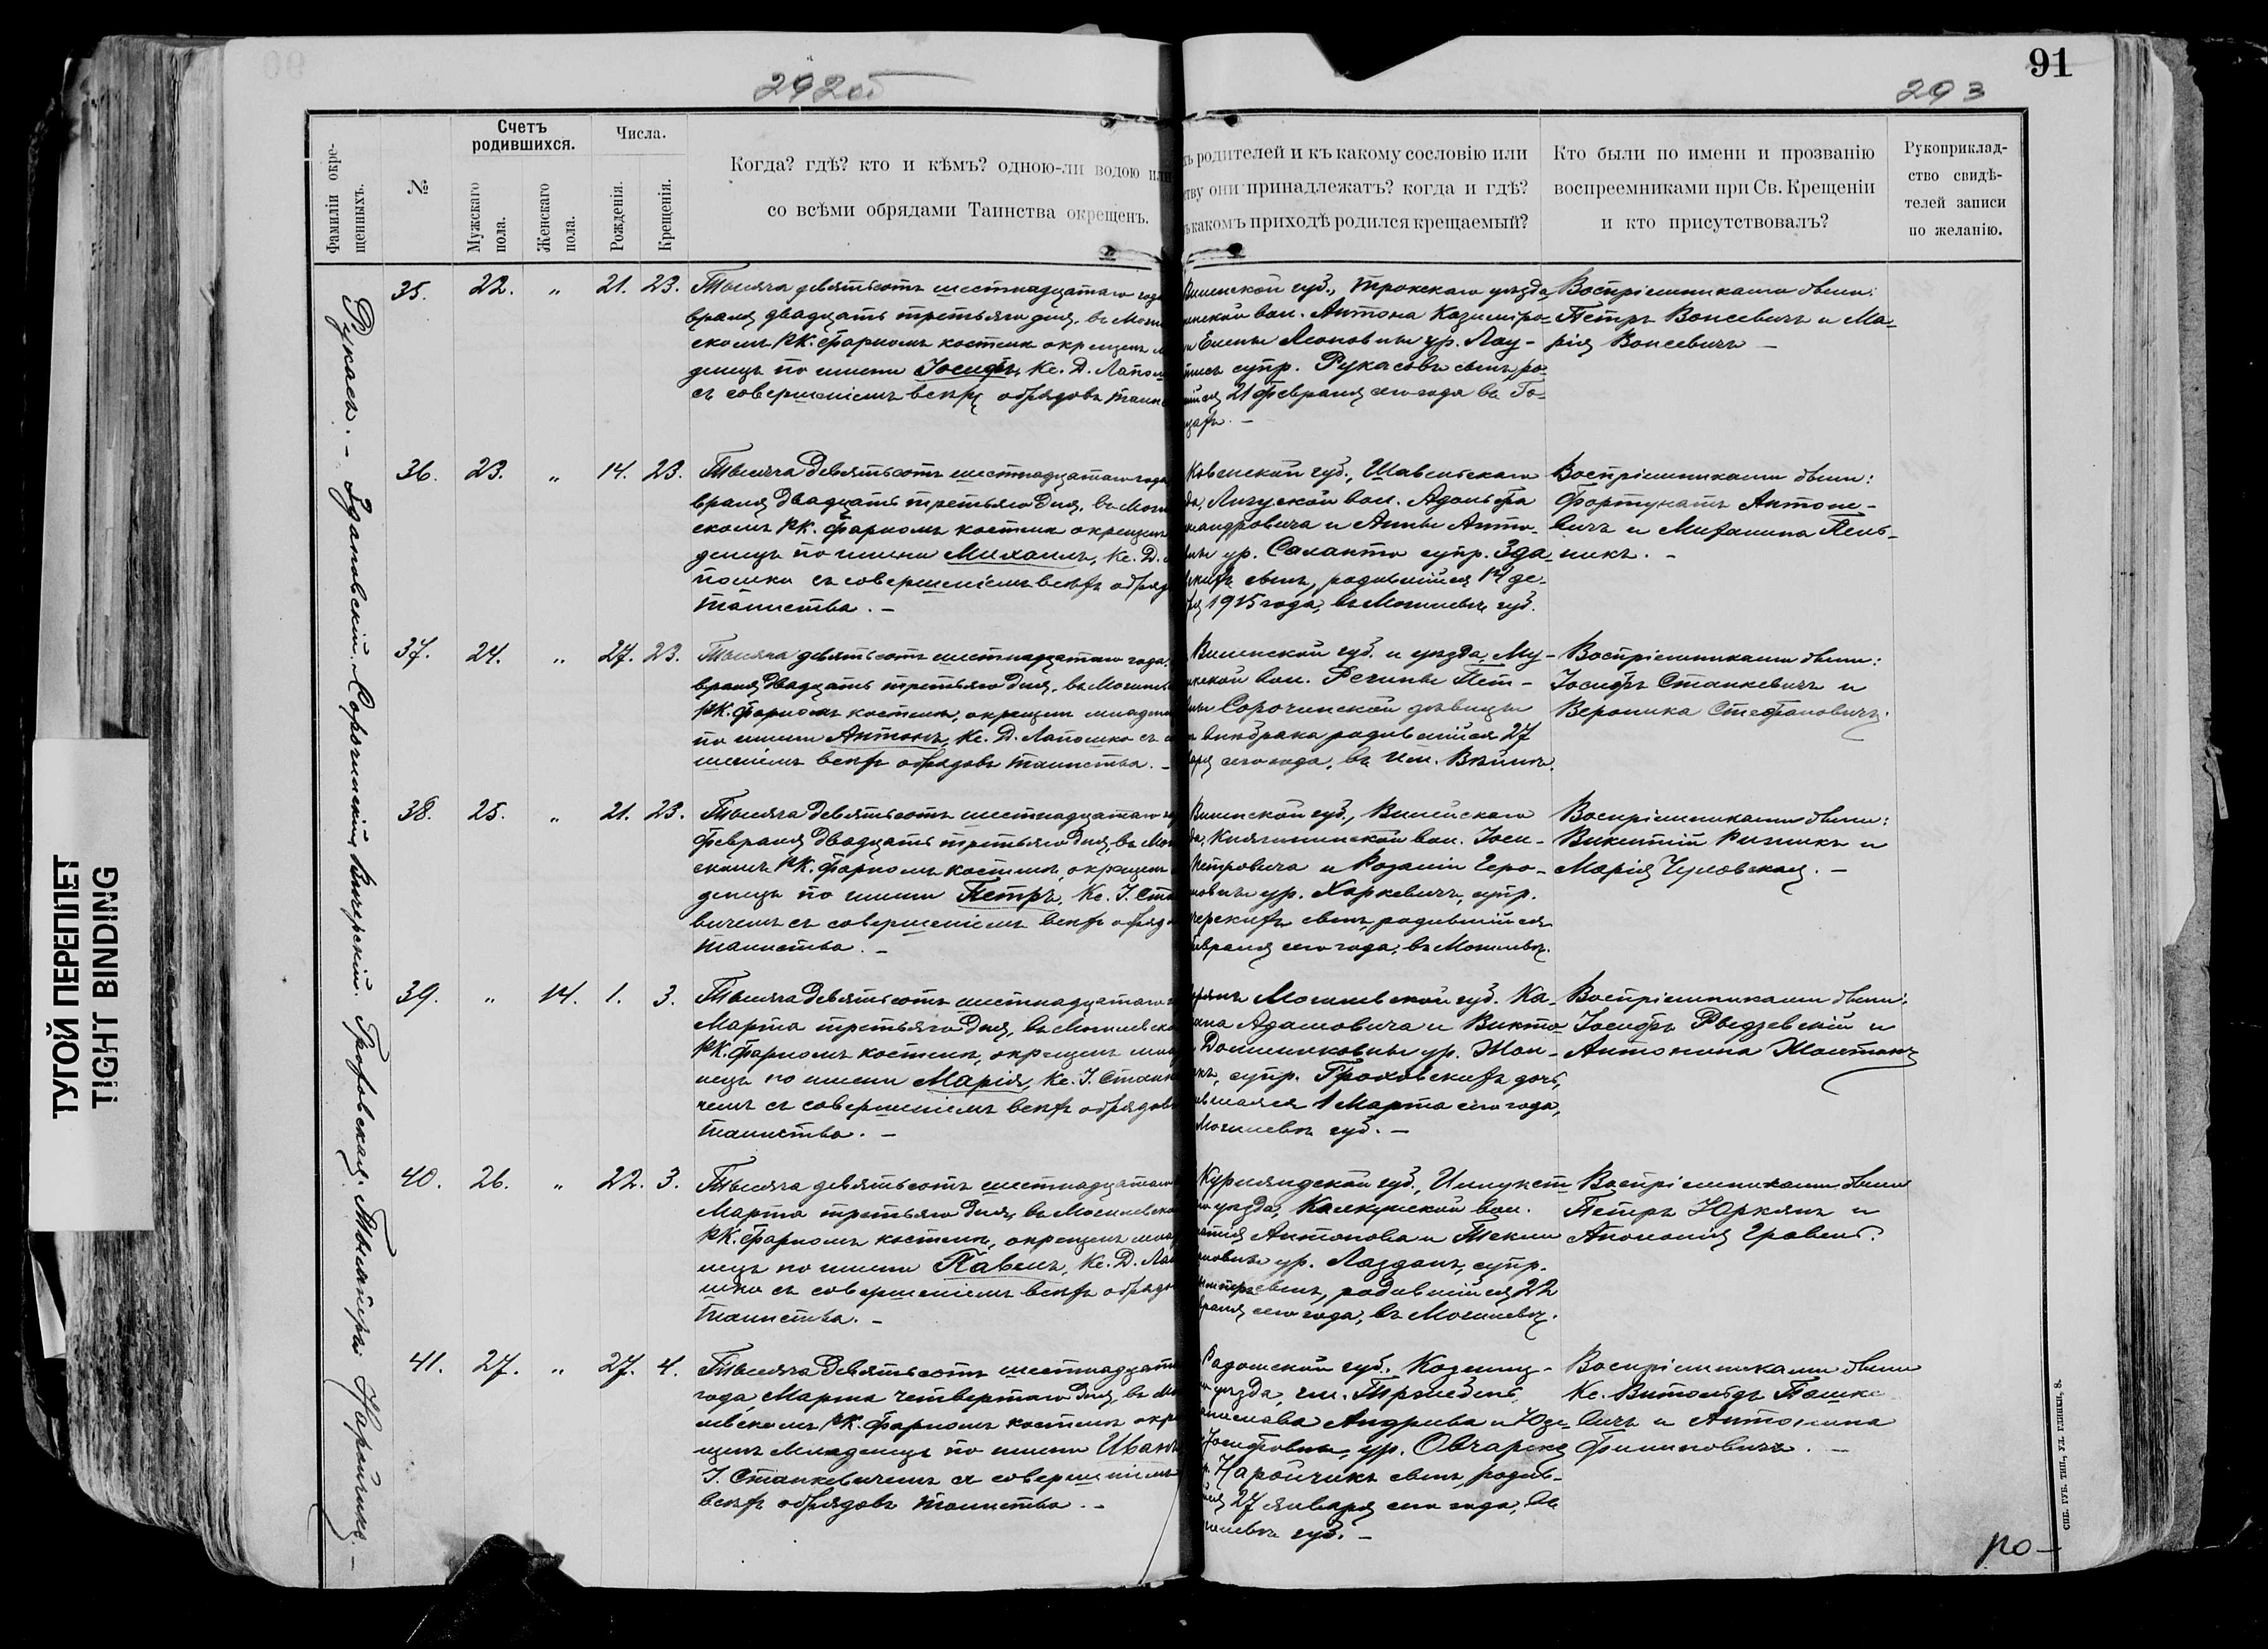 292об
293
91
ТУГОЙ ПЕРЕПЛЕТ
TIGHT BINDING
Фамиліи окре-
щенныхъ.
№
Счетъ
родившихся.
Мужскаго
пола.
Женскаго
пола.
Числа.
Рожденія.
Крещенія.
Когда? гдѣ? кто и кѣмъ? одною-ли водою или
со всѣми обрядами Таинства окрещенъ.
родителей и къ какому сословію или
они принадлежатъ? когда и гдѣ?
какомъ приходѣ родился крещаемый?
Кто были по имени и прозванію
воспреемниками при Св. Крещеніи
и кто присутствовалъ?
Рукоприклад-
ство свидѣ-
телей записи
по желанію.
Рукасъ. – Здановскій. Сорочинскій. Вичерскій. Гроховская. Наройчикъ. –
35. 22. " 21. 23.
Тысяча девятьсотъ шестнадцатаго года
враля двадцать третьяго дня, въ Моги
скомъ РК. фарномъ костелѣ окрещенъ м
денецъ по имени Іосифъ, Кс. Д. Лапош
съ совершеніемъ всѣхъ обрядовъ таин
Виленской губ., Трокскаго уѣзда,
вол. Антона Казимиро-
и Елены Леоновны ур. Лау-
супр. Рукасовъ сынъ, ро-
21 Февраля сего года въ Го-
Воспріемниками были:
Петръ Вонсевичъ и Ма-
рія Вонсевичъ –
36. 23. " 14. 23.
Тысяча девятьсотъ шестнадцатаго года
враля двадцать третьяго дня, въ Моги
скомъ РК. фарномъ костелѣ окрещенъ
денецъ по имени Михаилъ, Кс. Д.
пошко съ совершеніемъ всѣхъ обряд
таинства. –
Ковенской губ., Шавельскаго
да, вол. Адольфа
ксандровича и Анны Анто-
вны ур. Саланто супр. Зда-
скихъ сынъ, родившійся 14 де-
ря 1915 года, въ Могилевѣ губ.
Воспріемниками были:
Фортунатъ Антоне-
вичъ и Михалина Пель-
никъ. –
37. 24. " 27. 23.
Тысяча девятьсотъ шестнадцатаго года,
враля двадцать третьяго дня, въ Могилев
РК. фарномъ костелѣ, окрещенъ младен
по имени Антонъ, Кс. Д. Лапошко съ со
шеніемъ всѣхъ обрядовъ таинства. –
Виленской губ. и уѣзда, Му-
вол. Регины Пет-
вны Сорочинской дѣвицы
внѣбрака родившійся 27
аря сего года, въ
Воспріемниками были:
Іосифъ Станкевичъ и
Вероника Стефановичъ.
38. 25. " 21. 23.
Тысяча девятьсотъ шестнадцатаго го
Февраля двадцать третьяго дня, въ Мог
скомъ РК. фарномъ костелѣ, окрещенъ
денецъ по имени Петръ, Кс. І. Ста
вичемъ съ совершеніемъ всѣхъ обрядо
таинства. –
Виленской губ., Вилейскаго
да, Княгининской вол. Іоси-
Петровича и Розаліи Іеро-
новны ур. Харкевичъ, супр.
черскихъ сынъ, родившійся
евраля сего года, въ Могилевѣ.
Воспріемниками были:
Викентій и
Марія
39. " 14. 1. 3.
Тысяча девятьсотъ шестнадцатаго
Марта третьяго дня, въ Могилевско
РК. фарномъ костелѣ, окрещенъ мла
нецъ по имени Марія, Кс. І. Станке
чемъ съ совершеніемъ всѣхъ обрядовъ
таинства. –
Могилевской губ. Ка-
Адамовича и Викто-
Доминиковны ур. Жол-
супр. Гроховскихъ дочь,
вшаяся 1 Марта сего года,
Могилевѣ губ. –
Воспріемниками были:
Іосифъ и
Антонина
40. 26. " 22. 3.
Тысяча девятьсотъ шестнадцатаго
Марта третьяго дня, въ Могилевско
РК. фарномъ костелѣ, окрещенъ мла
нецъ по имени Павелъ, Кс. Д. Лап
шко съ совершеніемъ всѣхъ обрядо
таинства. –
Курляндской губ., Иллукст-
уѣзда, Калкунской вол.
Антонова и Текли
новны ур. Лазданъ, супр.
сынъ, родившійся 22
враля сего года, въ Могилевѣ.
Воспріемниками были
Петръ Юркянъ и
Аполонія
41. 27. " 27. 4.
Тысяча девятьсотъ шестнадцата
года, Марта четвертаго дня, въ Мо
левскомъ РК. фарномъ костелѣ окре
щенъ младенецъ по имени Иванъ
І. Станкевичемъ съ совершеніемъ
всѣхъ обрядовъ таинства. –
Радомской губ. Козениц-
уѣзда,
нислава Андреева и Юзе-
Іосифовны, ур. Овчарекъ
Наройчикъ сынъ, родив-
27 января сего года, въ
гилевѣ губ. –
Воспріемниками были
Кс. Витольдъ Пашке
вичъ и Антонина
Филиповичъ. –
СПБ. ГУБ. ТИП., УЛ. ГЛИНКИ, 8.